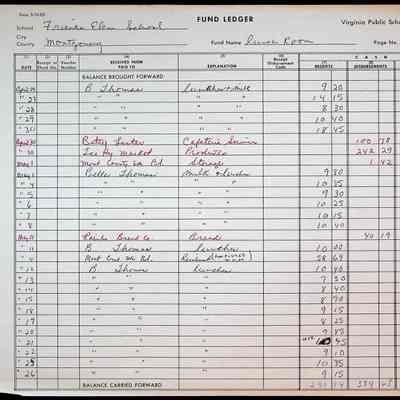 FUND LEDGER
Virginia Public Schools
School Friends Elem School
City
County Montgomery
Fund Name Lunch Room
Page No.
(1) (2) (3) (4) (5) (6) (7) (8)
CASH
DATE Receipt or Check No. Voucher Number RECEIVED FROM PAID TO EXPLANATION Receipt Disbursement Code RECEIPTS DISBURSEMENTS
BALANCE BROUGHT FORWARD
B Thomas Lunches + Milk 9 20
" 27 " " " 14 15
" 28 " " " 8 30
" 29 " " " 10 40
" 30 " " " 18 45
April 30 Betty Lester Cafeteria Service 100 78
" 30 Market Produce 242 29
May 1 Mont County Sch Bd. Storage 1 42
May 1 Belle Thomas Milk & Lunches 9 80
" 4 " " " 10 35
" 5 " " " 9 30
" 6 " " " 10 25
" 7 " " " 10 35
" 8 " " " 10 40
May 11 Bread Co Bread 40 19
" 11 B Thomas Lunches 10 00
Mont Co Sch Bd. 58 69
" 12 B Thomas Lunches 10 40
" 13 " " " 7 50
" 14 " " " 8 40
" 15 " " " 8 90
" 18 " " " 9 15
" 19 " " " 8 25
" 20 " " " 9 85
" 21 " " " 10 45
" 22 " " " 9 10
" 25 " " " 10 35
" 26 " " " 9 15
BALANCE CARRIED FORWARD